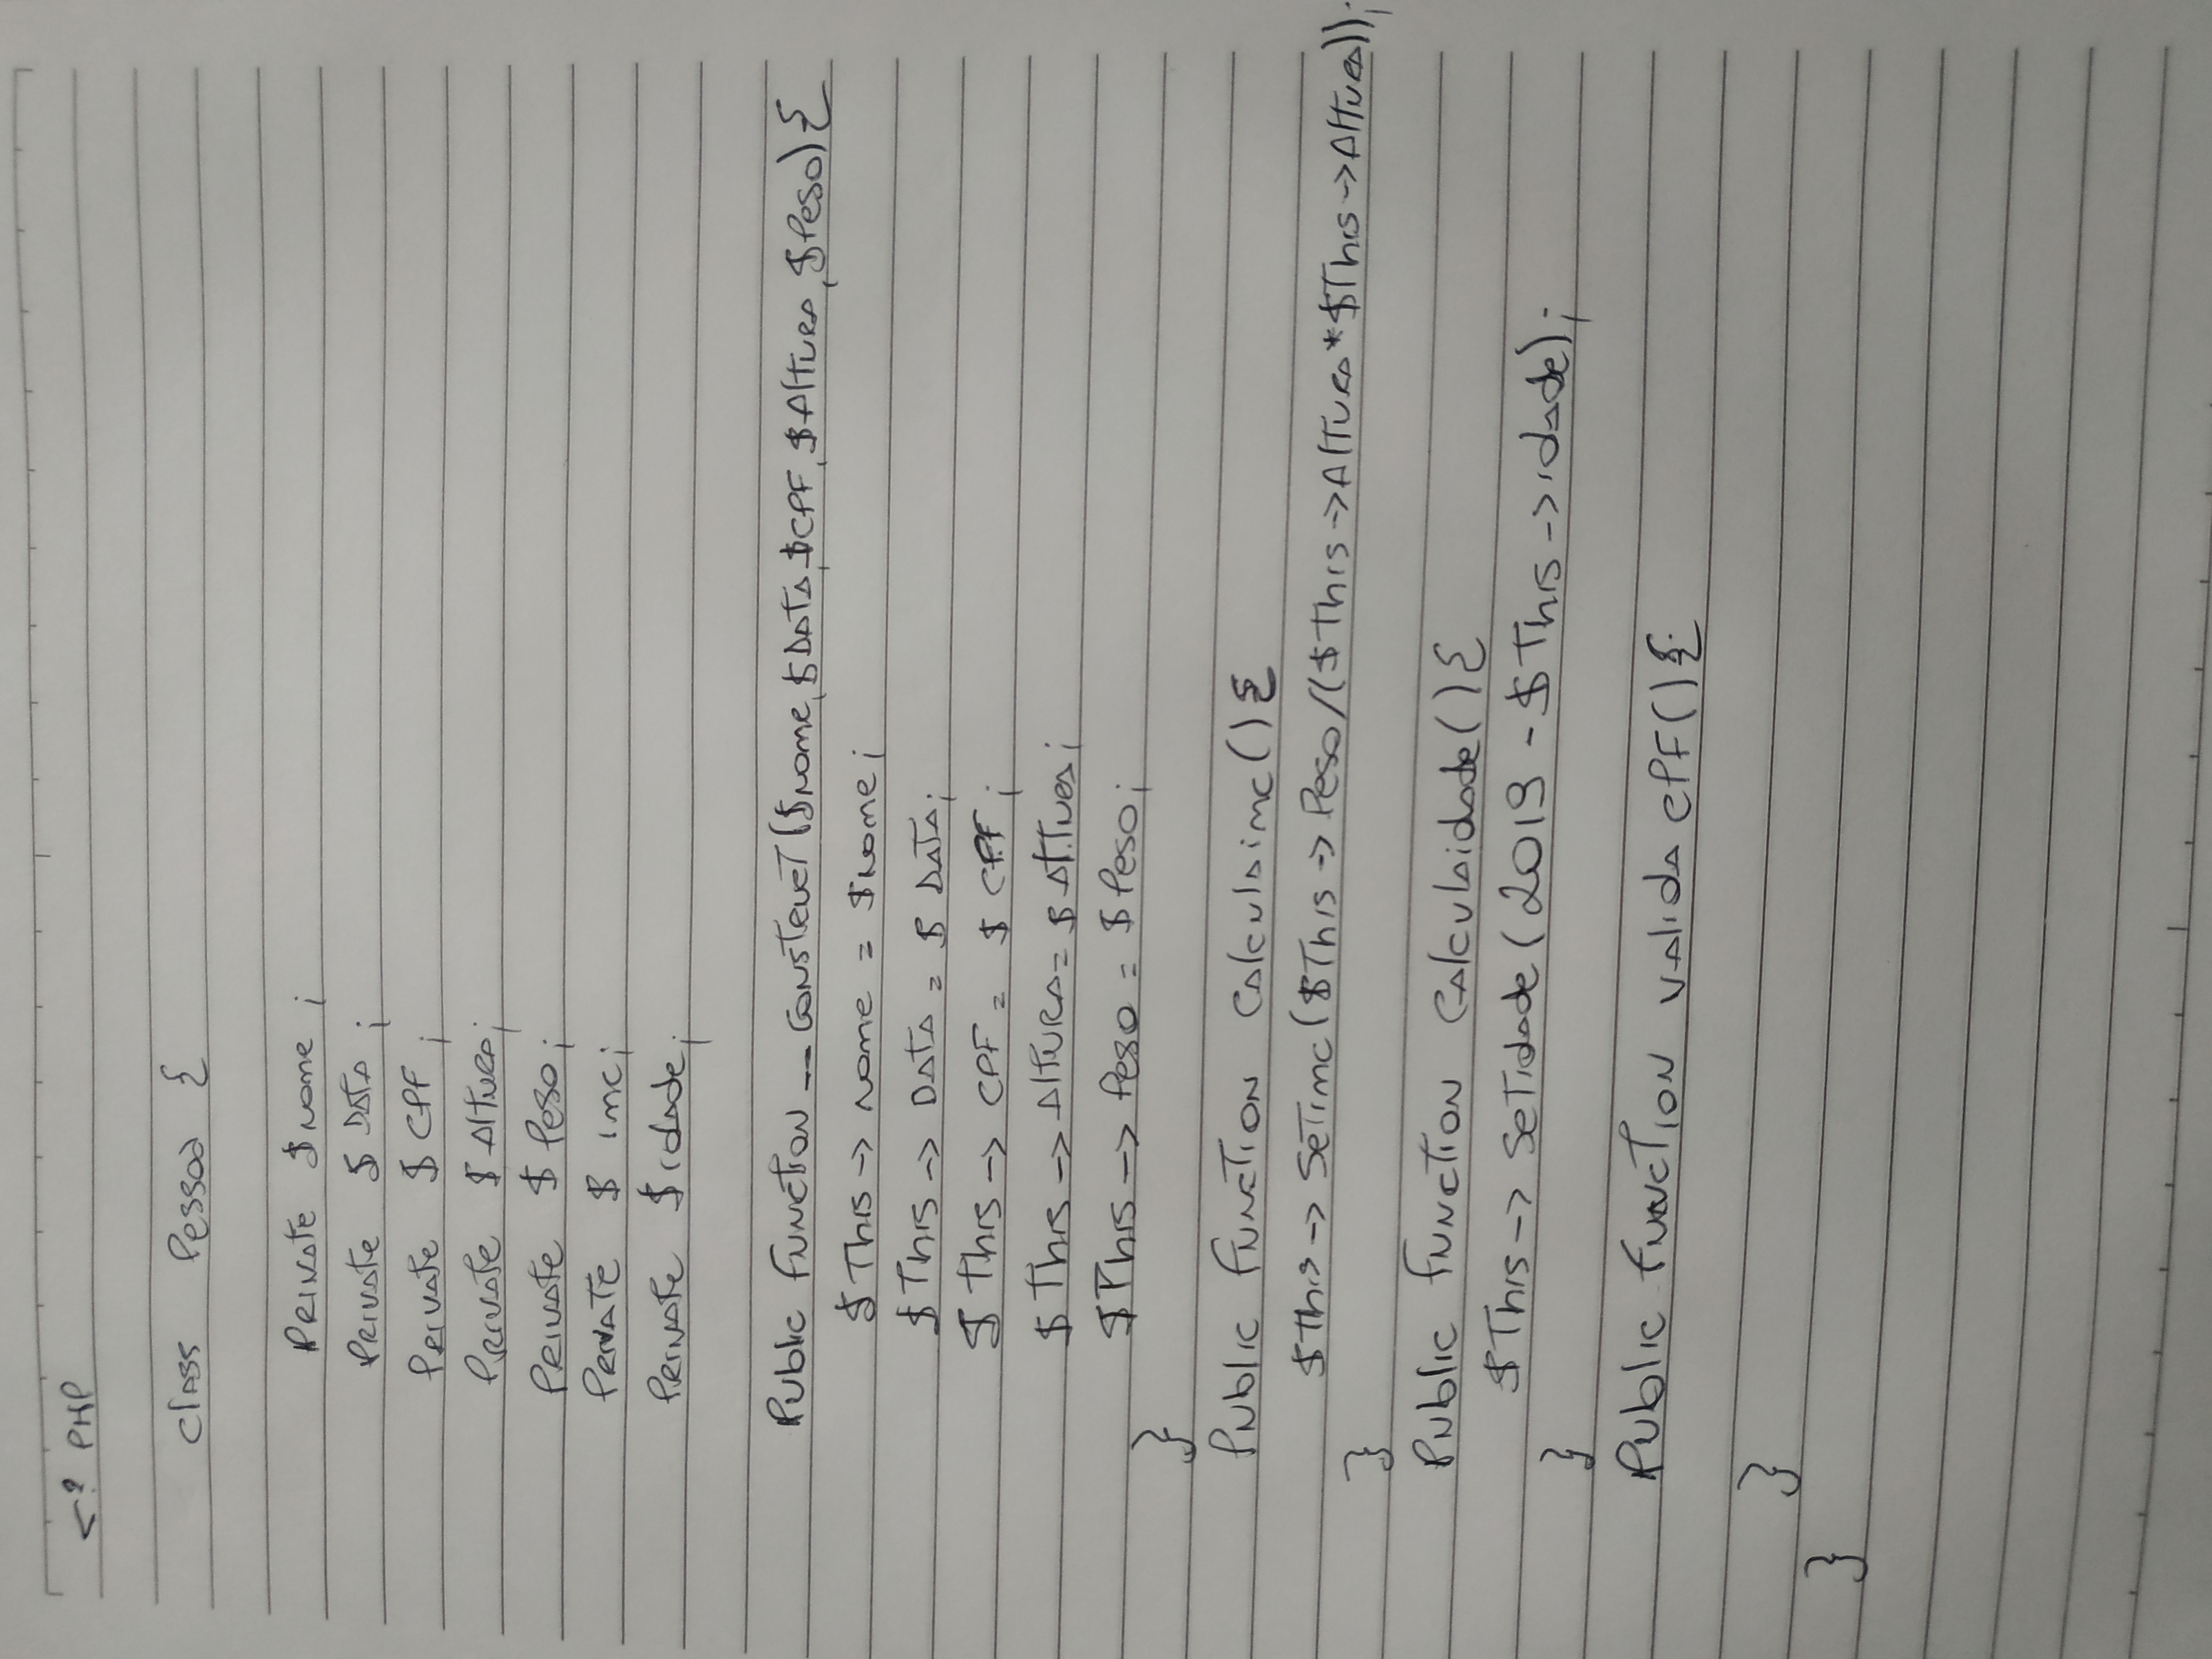 <? PHP
class Pessoa {
Private $nome ;
Private $ Data ;
Private $ CPF ;
Private $ Altura;
Private $ Peso;
Private $ imc;
Private $idade;
Public Function __ Construct ($nome, $Data, $CPF, $Altura, $Peso) {
$This -> nome = $nome;
$This -> Data = $ Data;
$ This -> CPF = $ CPF;
$ This -> Altura = $ Altura;
$This -> Peso = $ Peso;
}
Public Function Calculaimc() {
$This -> SeTimc($This -> Peso/($This ->Altura*$This->Altura));
}
Public Function Calculaidade() {
$This -> SeTidade (2019 - $This -> idade);
}
Public Function valida CPF() {
}
}